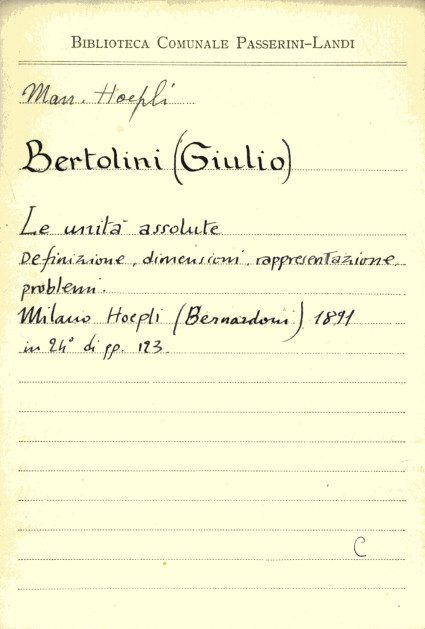 BIBLIOTECA COMUNALE PASSERINI-LANDI
Man. Hoepli
Bertolini (Giulio)
Le unità assolute
Definizione, dimensioni, rappresentazione,
problemi.
Milano Hoepli (Bernardoni) 1891
in 24° di pp. 123.
C